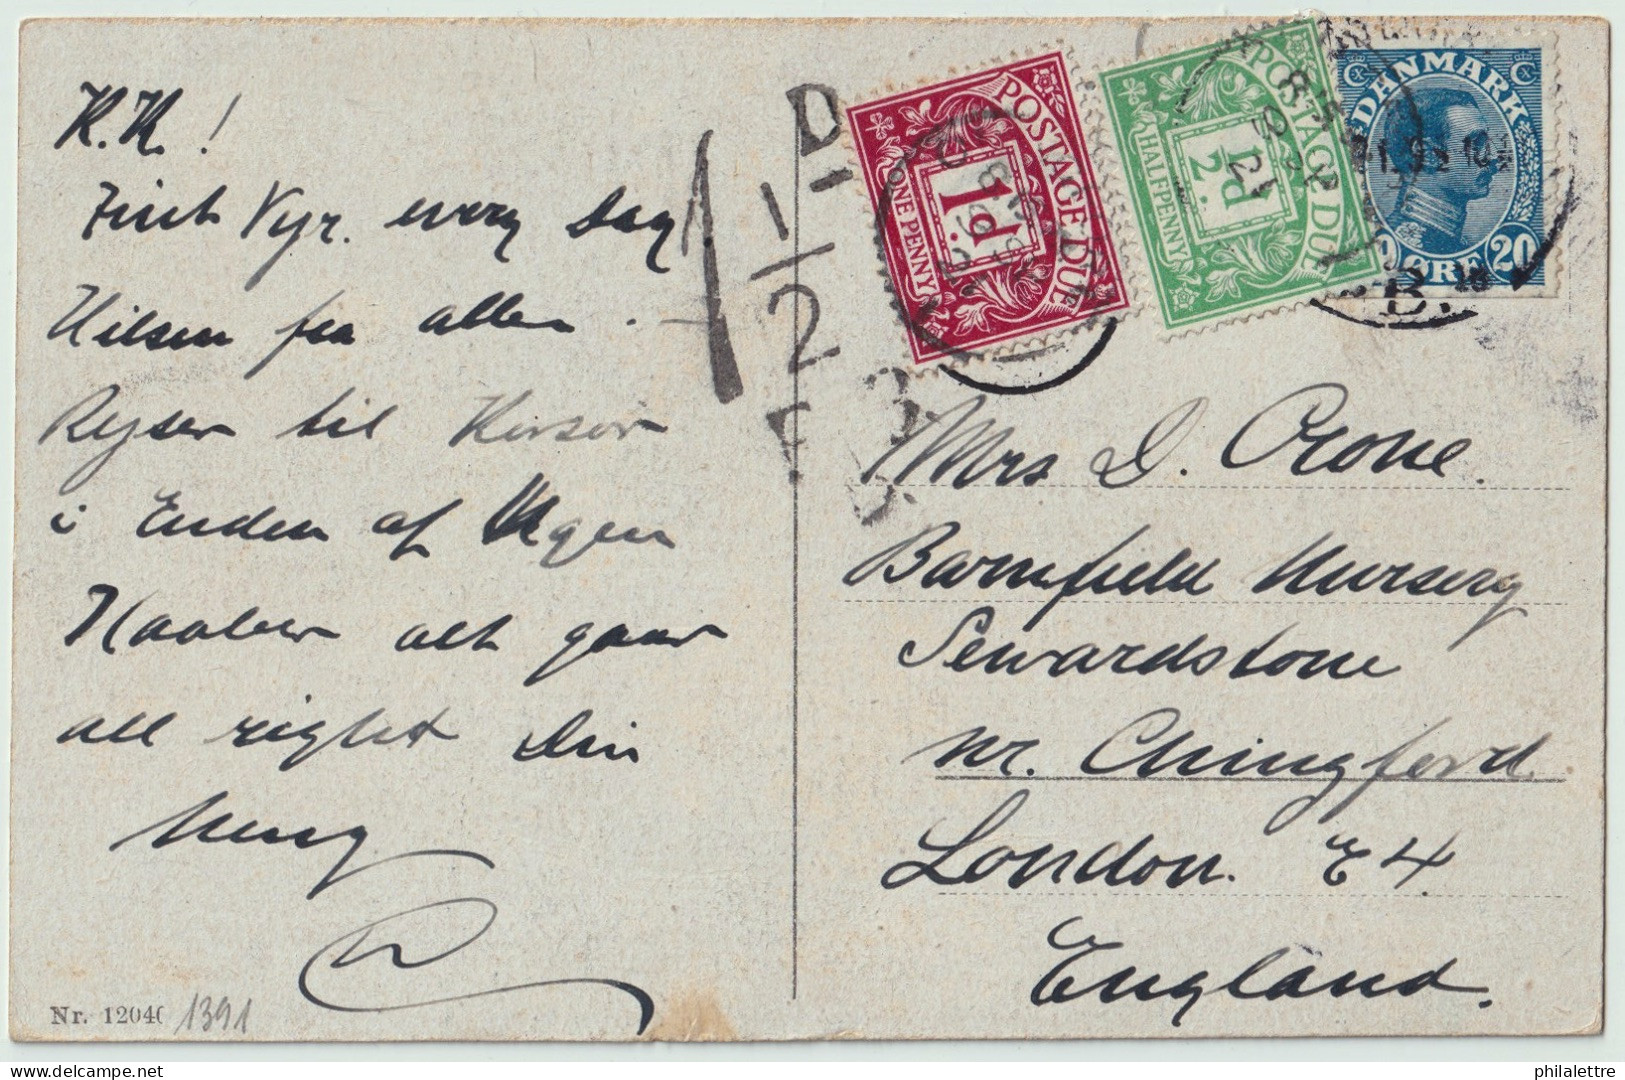 K.K!
Fint Vejr. every Dag
Hilsen fra alle.
Rejser til Korsør
i Enden af Ugen
Haaber alt gaar
all right Din
Nr. 12040
1391
1 1/2 D
F.B.
D.
POSTAGE DUE
1d.
ONE PENNY
POSTAGE DUE
½d
HALFPENNY
DANMARK
20 ØRE
B.
Mrs D. Crone.
Barnfield Nursery
Sewardstone
nr. Chingford
London. E4.
England.
philalettre